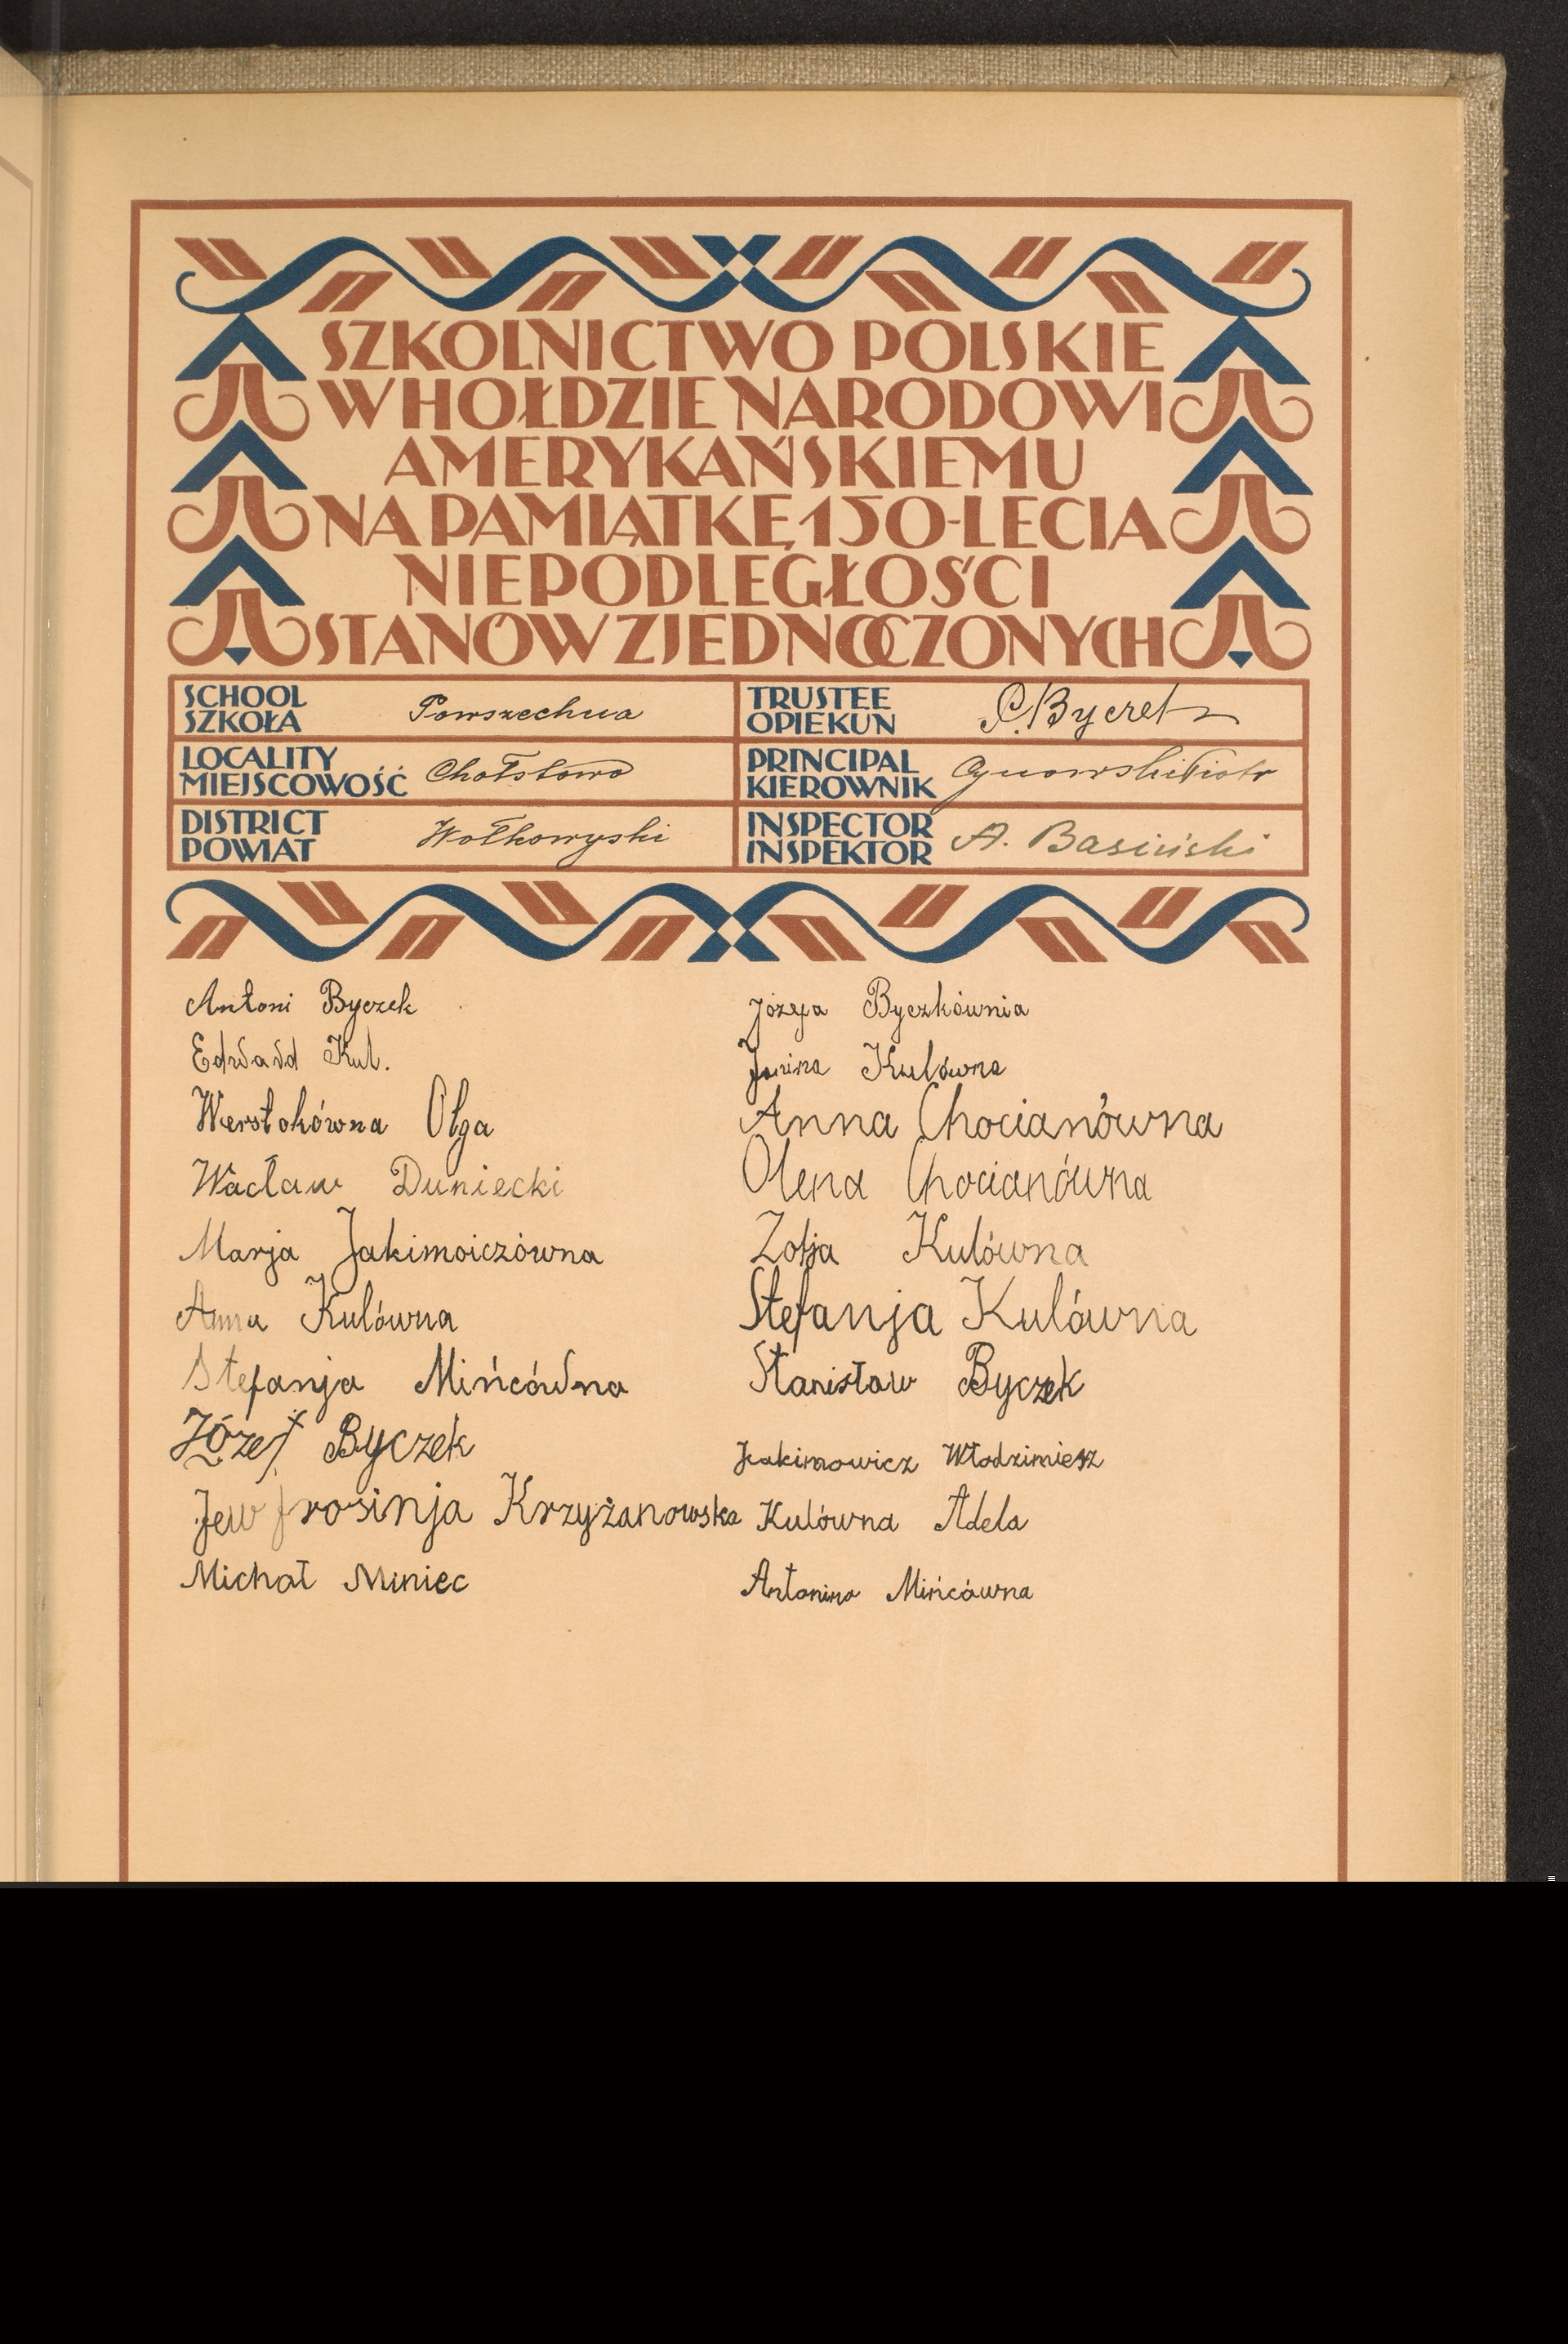 SZKOLNICTWO POLSKIE
W HOŁDZIE NARODOWI
AMERYKAŃSKIEMU
NA PAMIĄTKĘ 150-LECIA
NIEPODLEGŁOŚCI
STANÓW ZJEDNOCZONYCH
SCHOOL
SZKOŁA
Powszechna
TRUSTEE
OPIEKUN
P. Byczek
LOCALITY
MIEJSCOWOŚĆ
Chołstowo
PRINCIPAL
KIEROWNIK
Piotr
DISTRICT
POWIAT
Wołkowyski
INSPECTOR
INSPEKTOR
A. Basiński
Antoni Byczek
Edward Kul.
Werstokówna Olga
Wacław Duniecki
Marja Jakimoiczówna
Anna Kulówna
Stefanja Mińcówna
Józef Byczek
Jewfrosinja Krzyżanowska
Michał Miniec
Józefa Byczkównia
Janina Kulówna
Anna Chocianówna
Olena Chocianówna
Zofja Kulówna
Stefanja Kulówna
Stanisław Byczek
Jakimowicz Włodzimiesz
Kulówna Adela
Antonina Mińcówna